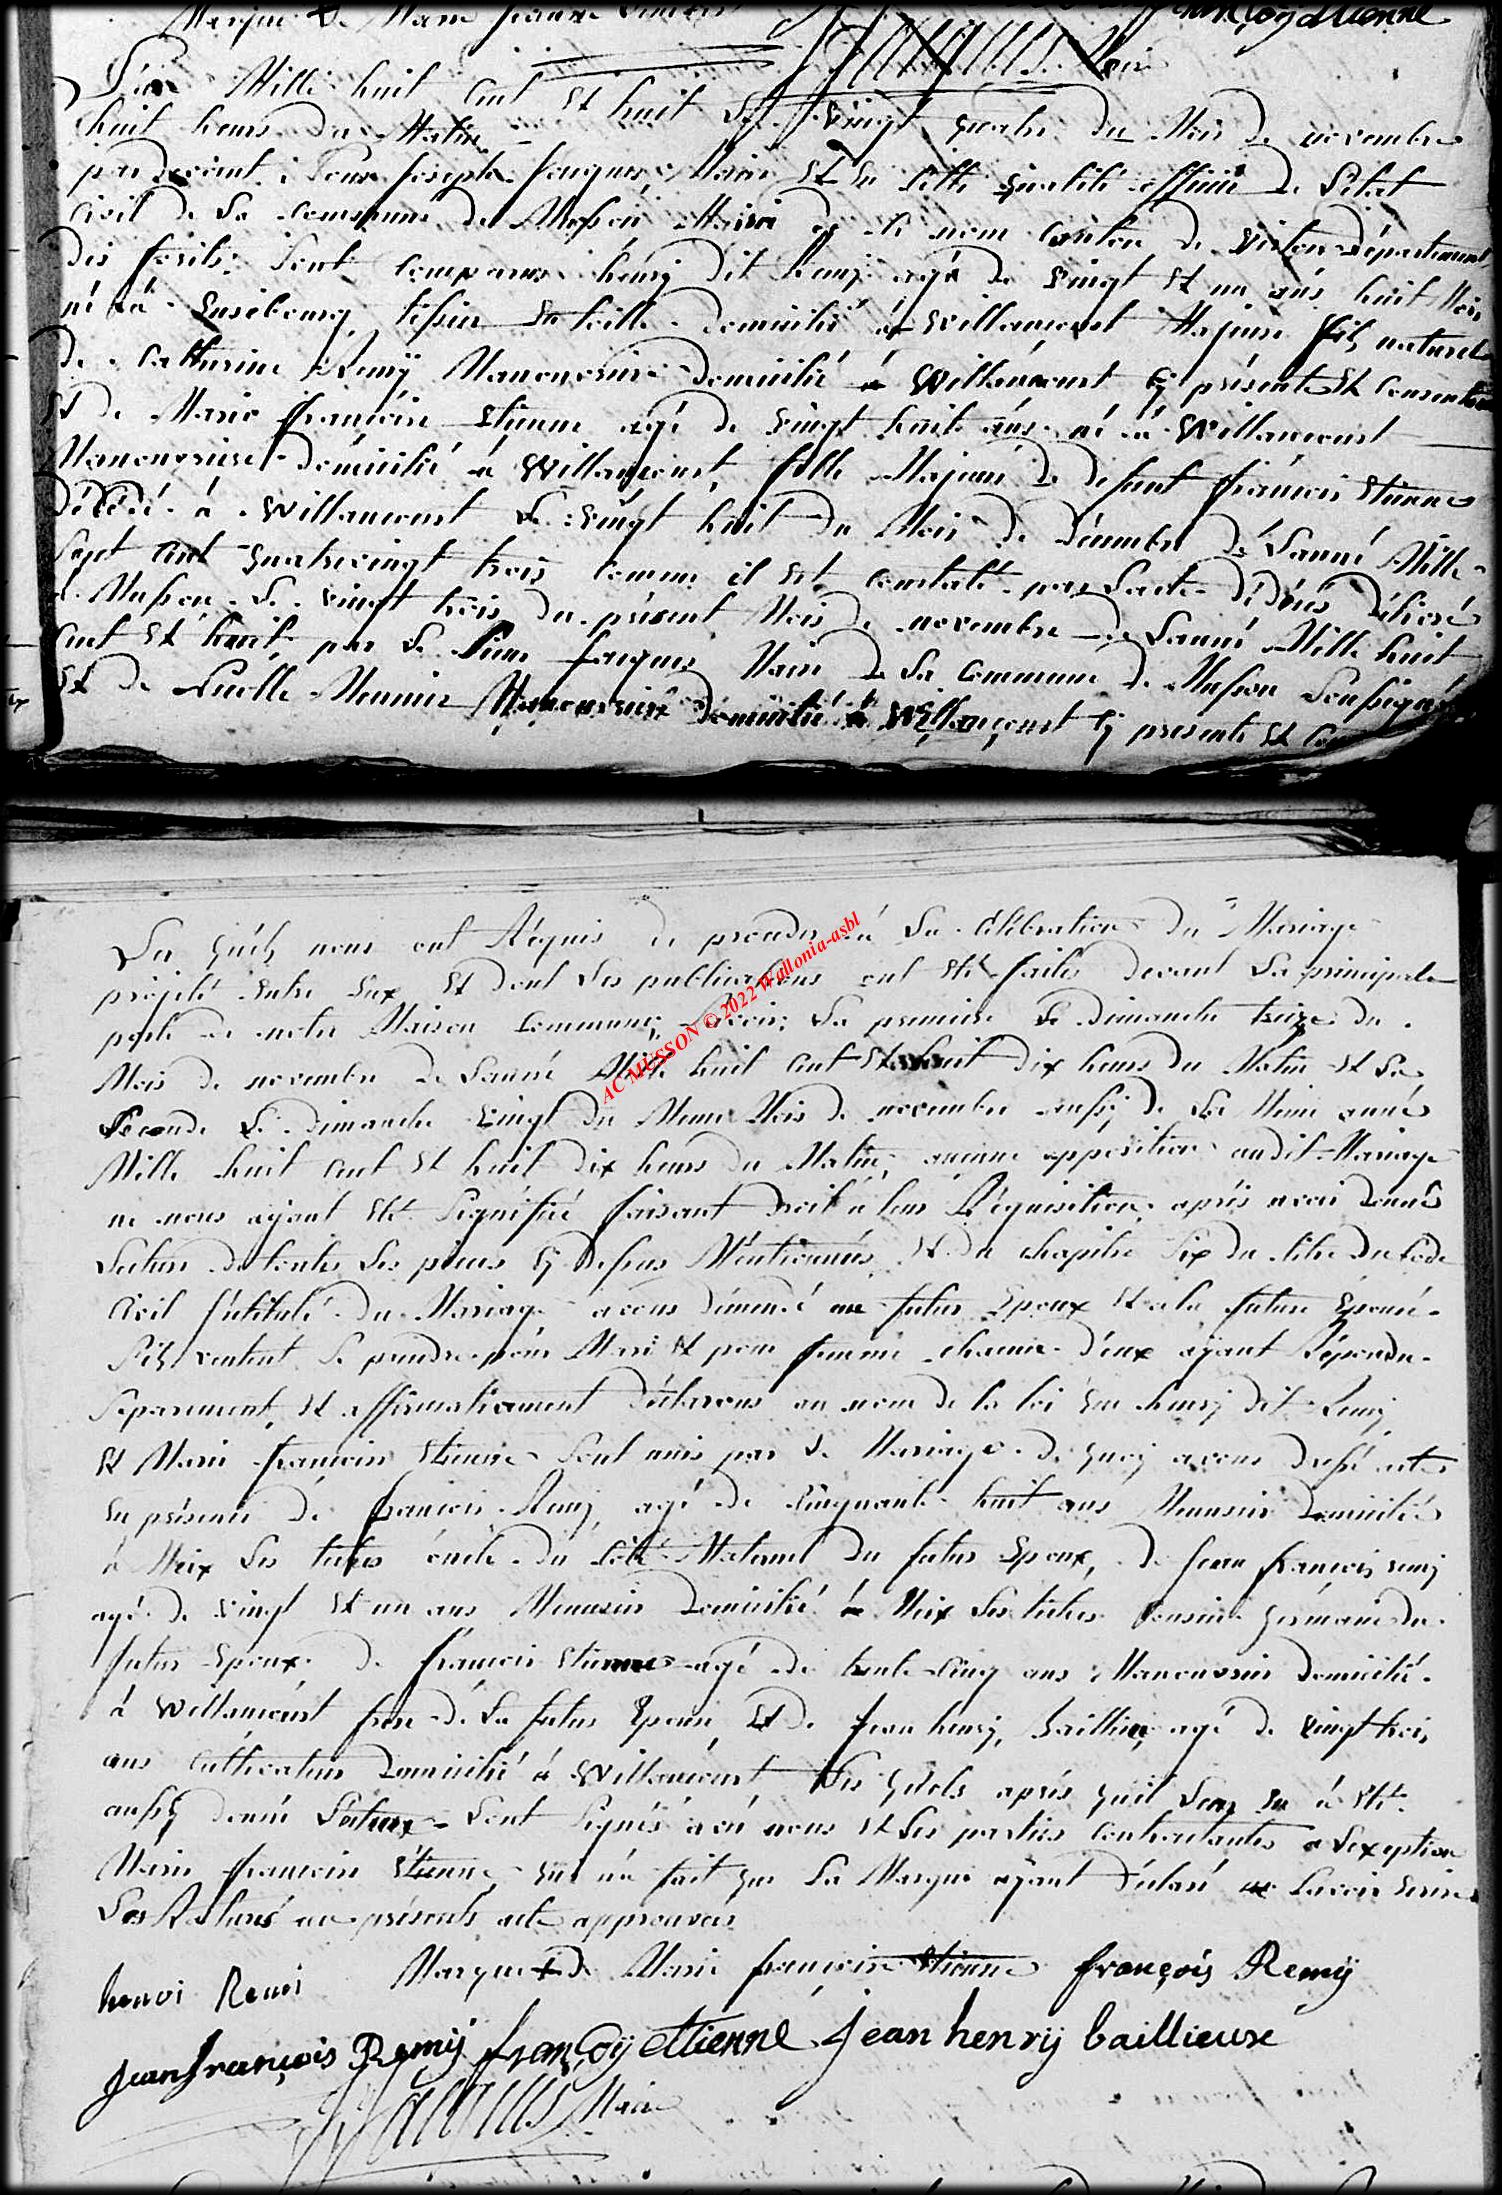 Marque + de Marie françoise Etienne françoy etienne
Maire
L'an Mille huit Cent Et huit Le vingt quatre du Mois de novembre
huit heures du Matin
pardevant Nous Joseph Jacques, Maire Et En Cette qualité officier de L'etat
Civil de La Commune de Musson Mairie de ce nom Canton de Virton département
des forêts. Sont Comparus henrÿ dit Remÿ agé de vingt Et un ans huit Mois
né à Luxebourg, tisserin En toille domicilié à Willancourt Majeure fils naturel
de Catherine Remÿ Manouvrière domicilié à Willancourt Cÿ présente Et Consentante
Et de Marie françoise Etienne agé de vingt huit ans né à Willancourt
Manouvrière domicilié à Willancourt, fille Majeure de defunt françois Etienne
décédé à Willancourt Le vingt huit du Mois de décembre de L'année Mille
Sept Cent quatrevingt trois Comme il Est Constaté par L'acte de décès délivré
à Musson Le vingt trois du présent Mois de novembre de L'année Mille huit
Cent Et huit par Le Sieur Jacques Maire de La Commune de Musson Soussigné
Et de Meunier Manouvrière domicilié à Willancourt Cÿ présente Et
Les quels nous ont Réquis de proceder à La Célébration du Mariage
projeté Entre Eux Et dont Les publications ont Eté faites devant La principale
porte de notre Maison Commune; Savoir; La premiere Le dimanche treize du
Mois de novembre de L'année Mille huit Cent Et huit dix heures du Matin Et La
Seconde Le dimanche vingt du Meme Mois de novembre aussÿ de La Meme année
Mille huit Cent Et huit dix heures du Matin, aucune opposition audit Mariage
ne nous ayant Eté Signifiée faisant droit à leur Réquisition, après avoir donné
Lecture de toutes Les pieces Cÿ dessus Mentionnées, Et du chapitre Six du titre du Code
Civil Intitulé du Mariage avons demandé au futur Epoux Et a la future Epouse
S'ils veulent Se prendre pour Mari Et pour femme chacun d'eux ayant Répondu
Séparement, Et affirmativement déclarons au nom de la loi que henrÿ dit Remÿ
Et Marie françoise Etienne Sont unis par Le Mariage de quoÿ avons dressé acte
En présence de françois Remÿ, agé de Cinquante huit ans Menusier domicilié
à Meix Les tiches oncle du Coté Maternel du futur Epoux, de Jean françois remÿ
agé de vingt Et un ans Menusier domicilié à Meix Les tiches Cousin Germain du
futur Epoux de françois Etienne agé de trente Cinq ans Manouvrier domicilié
à Willancourt frère de La future Epouse, Et de Jean henrÿ, baillieux agé de vingt trois
ans Cultivateur domicilié à Willancourt Les quels après qu'il Leur En à Eté
aussÿ donné Lecture Sont Signés avec nous Et Les parties Contractantes a L'exception
Marie françoise Etienne qui n'a fait que La Marque ayant déclaré ne Savoir Ecrire
Les Raturés au présente acte approuvés
Marque + de Marie françoise Etienne françois Remÿ
henri Remi
Jean françois Remÿ françoy etienne Jean henrÿ baillieuxe
Maire
AC MUSSON © 2022 Wallonia-asbl